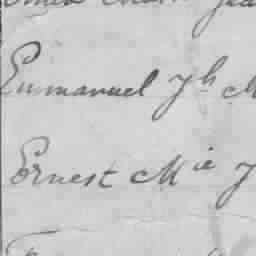 Emmanuel Jh M
Ernest Mie J